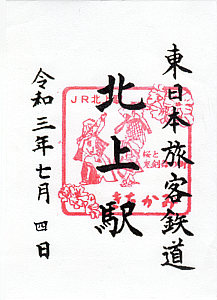 東日本旅客鉄道
北上駅
令和三年七月四日
JR北上
桜と
きたかみ